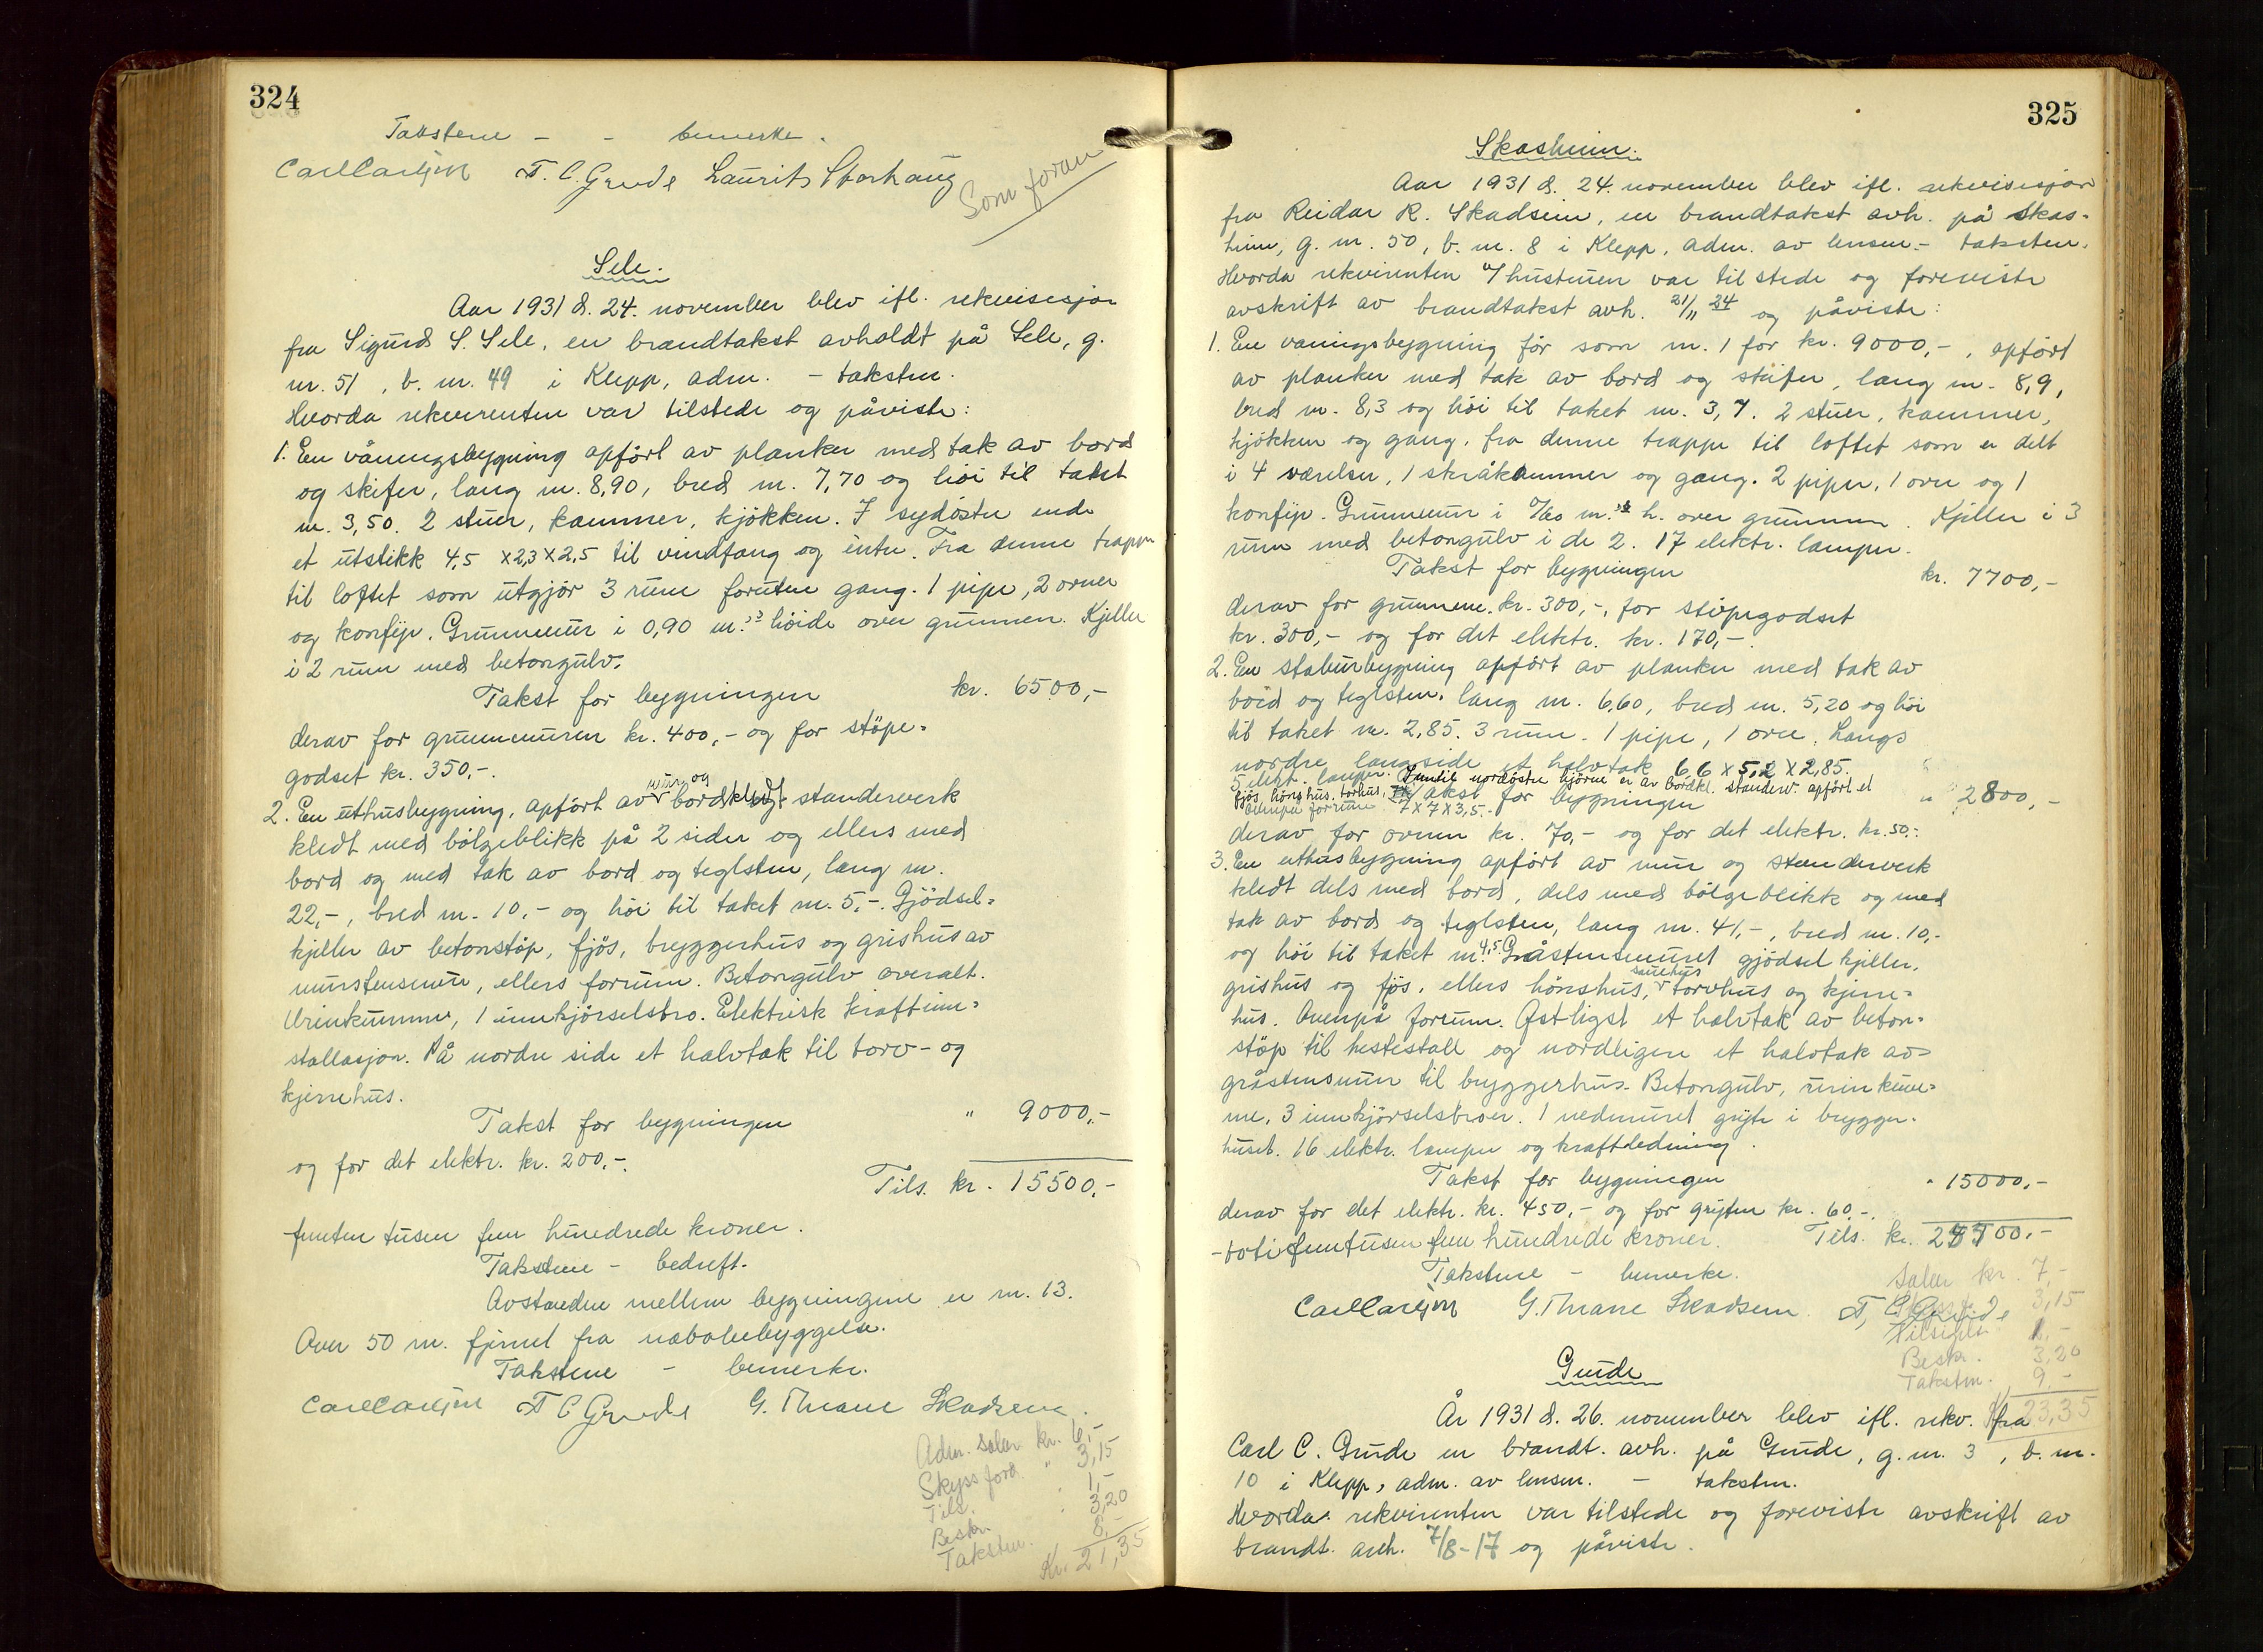 324
Takstene - - bemerke.
Carl Carlsen T. C. Grude Laurits Storhaug
Som foran
Sele.
Aar 1931 d. 24. november blev ifl. rekvisisjon
fra Sigurd S. Sele, en brandtakst avholdt på Sele, g.
nr. 51, b. nr. 49 i Klepp, adm. - takstm.
Hvorda rekvirenten var tilstede og påviste:
1. En våningsbygning opført av planker med tak av bord
og skifer, lang m. 8,90, bred m. 7,70 og höi til taket
m. 3,50. 2 stuer, kammer, kjökken. I sydöstre ende
et utstikk 4,5 x 2,3 x 2,5 til vindfang og entre. Fra denne trappe
til loftet som utgjör 3 rum foruten gang. 1 pipe, 2 ovner
og komfyr. Grunnmur i 0,90 m.s höide over grunnen. Kjeller
i 2 rum med betongulv.
Takst for bygningen kr. 6500,-
derav for grunnmuren kr. 400,- og for stöpe-
godset kr. 350,-.
2. En uthusbygning, opfört av mur og bordkledt standerverk
kledt med bölgeblikk på 2 sider og ellers med
bord og med tak av bord og teglsten, lang m.
22,-, bred m. 10,- og höi til taket m. 5,-. Gjödsel-
kjeller av betonstöp, fjös, bryggerhus og grishus av
murstensmur, ellers forrum. Betongulv overalt.
Urinkumme, 1 innkjörselsbro. Elektrisk kraftinn-
stallasjon. På nordre side et halvtak til torv- og
kjerrehus.
Takst for bygningen " 9000,-
og for det elektr. kr. 200,-.
Tils. kr. 15500,-
femten tusen fem hundrede kroner.
Takstene - bedrift.
Avstanden mellem bygningene er m. 13.
Over 50 m. fjernet fra nabobebyggelse.
Takstene - bemerke.
Carl Carlsen T C Grude G. Thrane Skadsem.
Adm. salær kr. 6,-
Skyss ford. " 3,15
Tils. 1,-
Beskr. " 3,20
Takstm. 8,-
Kr. 21,35
325
Skasheim.
Aar 1931 d. 24. november blev ifl. rekvisisjon
fra Reidar R. Skadsem, en brandtakst avh. på Skas-
heim, g. nr. 50, b. nr. 8 i Klepp, adm. av lensm. - takstm.
Hvorda rekvirenten v/hustruen var tilstede og foreviste
avskrift av brandtakst avh. 21/11 24 og påviste:
1. En vaningsbygning för som nr. 1 for kr. 9000,-, opfört
av planker med tak av bord og skifer, lang m. 8,9,
bred m. 8,3 og höi til taket m. 3,7. 2 stuer, kammer,
kjökken og gang, fra denne trappe til loftet som er delt
i 4 værelser, 1 skråkammer og gang. 2 piper, 1 ovn og 1
komfyr. Grunnmur i 0,60 m.s h. over grunnen. Kjeller i 3
rum med betongulv i de 2. 17 elektr. lamper.
Takst for bygningen kr. 7700,-
derav for grunnmu. kr. 300,-, for stöpegodset
kr. 300,- og for det elektr. kr. 170,-.
2. En staburbygning opfört av planker med tak av
bord og teglsten, lang m. 6,60, bred m. 5,20 og höi
til taket m. 2,85. 3 rum. 1 pipe, 1 ovn. Langs
nordre langside et halvtak 6,6 x 5,2 x 2,85.
5 elektr. lamper. Inntil nordöstre hjörne er av bordkl. standerv. opfört et
fjös, hönsehus, torvhus, Takst for bygningen " 2800,-
ovenpå forrum 7 x 7 x 3,5.-
derav for ovnen kr. 70,- og for det elektr. kr. 50.-.
3. En uthusbygning opfört av mur og standerverk
kledt dels med bord, dels med bölgeblikk og med
tak av bord og teglsten, lang m. 41,-, bred m. 10,-
og höi til taket m. 4,5 Gråstensmuret gjödselkjeller,
grishus og fjös, ellers hönshus, sauehus torvhus og kjerre-
hus. Ovenpå forrum. Östligst et halvtak av beton-
stöp til hestestall og nordligere et halvtak av
gråstensmur til bryggerhus. Betongulv, urinkum-
me, 3 innkjörselsbroer. 1 nedmuret gryte i brygger-
huset. 16 elektr. lamper og kraftledning.
Takst for bygningen " 15000,-
derav for det elektr. kr. 450,- og for gryten kr. 60.-.
-totifemtusen fem hundrede kroner. Tils. kr. 25500,-
Takstene - bemerke.
Carl Carlsen G. Thrane Skadsem T. C Grude
Salær kr. 7,-
3,15
1,-
Beskr. 3,20
Takstm. 9.-
23,35
Grude
År 1931 d. 26. november blev ifl. rekv. fra
Carl C. Grude en brandt. avh. på Grude, g. nr. 3, b. nr.
10 i Klepp, adm. av lensm. - takstm.
Hvorda rekvirenten var tilstede og foreviste avskrift av
brandt. avh. 7/8-17 og påviste.